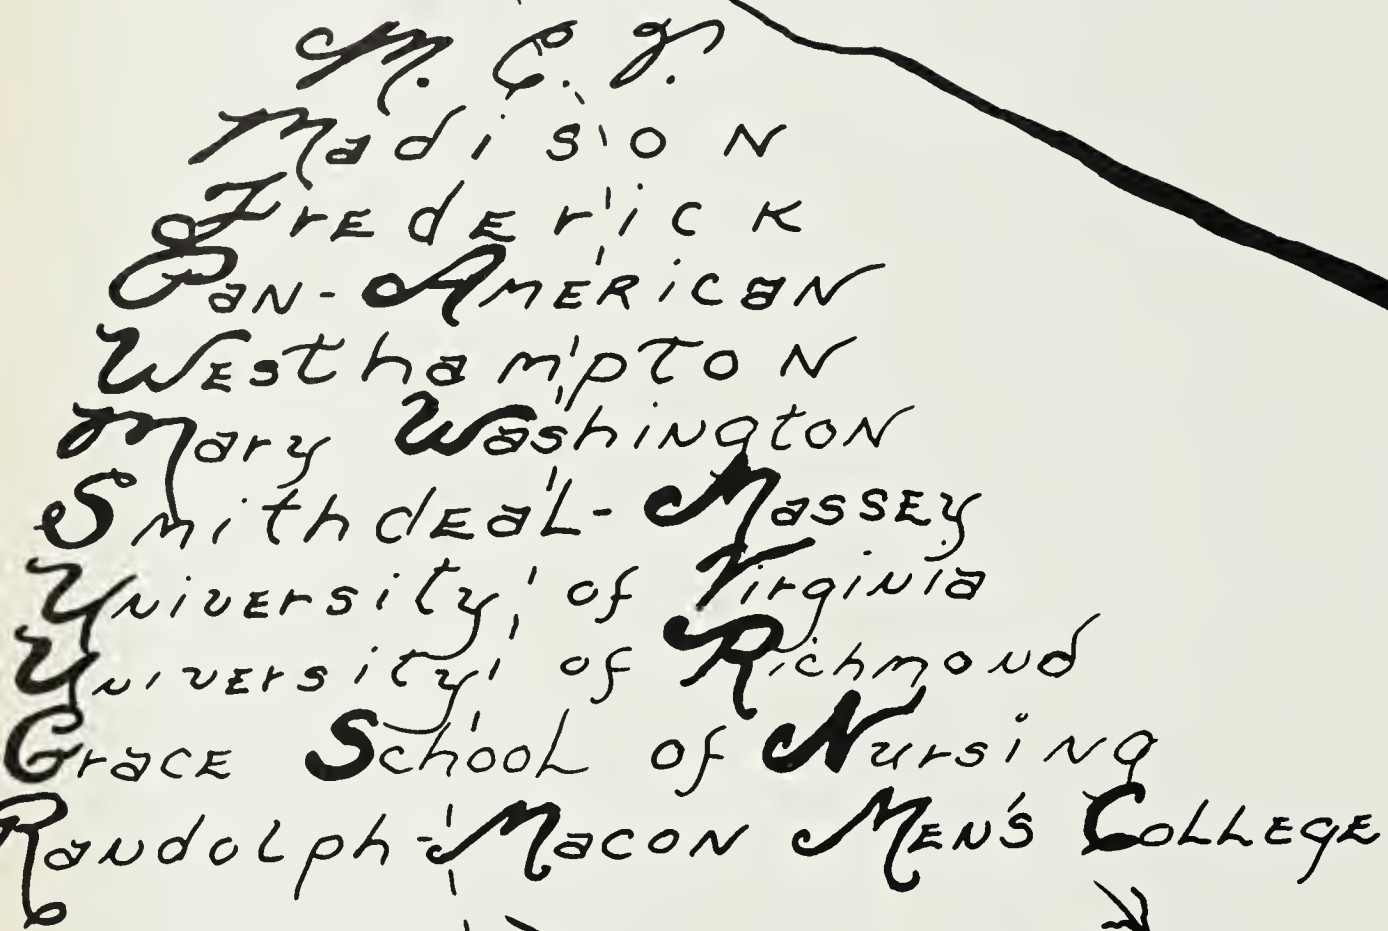 M. C.
Madison
Frederick
Pan-American
Westhampton
Mary Washington
Smithdeal-Massey
University of Virginia
University of Richmond
Grace School of Nursing
Randolph-Macon Men's College